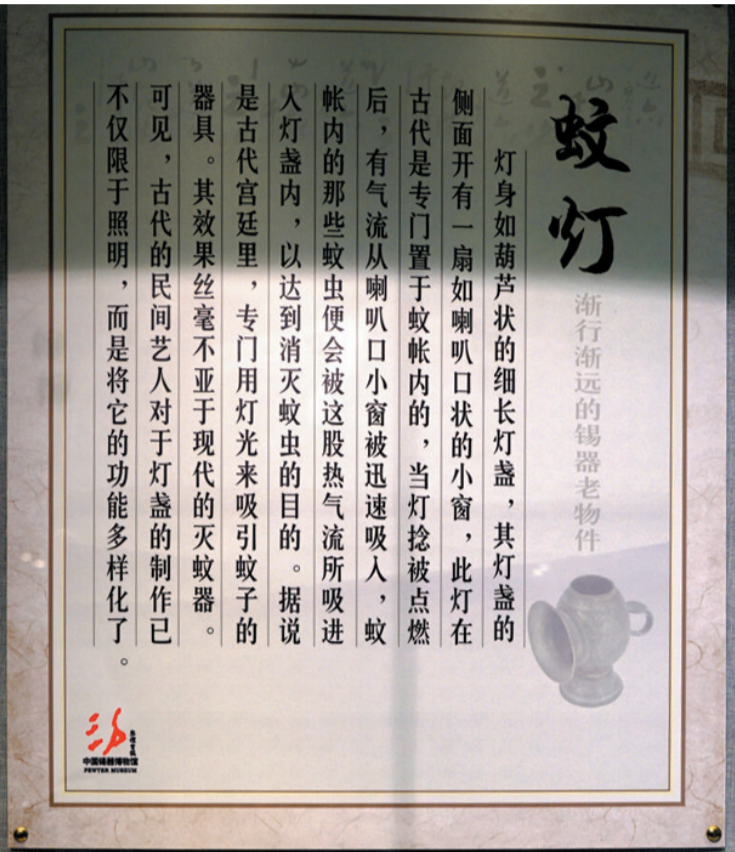 蚊灯
渐行渐远的锡器老物件
灯身如葫芦状的细长灯盏，其灯盏的
侧面开有一扇如喇叭口状的小窗，此灯在
古代是专门置于蚊帐内的，当灯捻被点燃
后，有气流从喇叭口小窗被迅速吸入，蚊
帐内的那些蚊虫便会被这股热气流所吸进
入灯盏内，以达到消灭蚊虫的目的。据说
是古代宫廷里，专门用灯光来吸引蚊子的
器具。其效果丝毫不亚于现代的灭蚊器。
可见，古代的民间艺人对于灯盏的制作已
不仅限于照明，而是将它的功能多样化了。
中国锡器博物馆
PEWTER MUSEUM